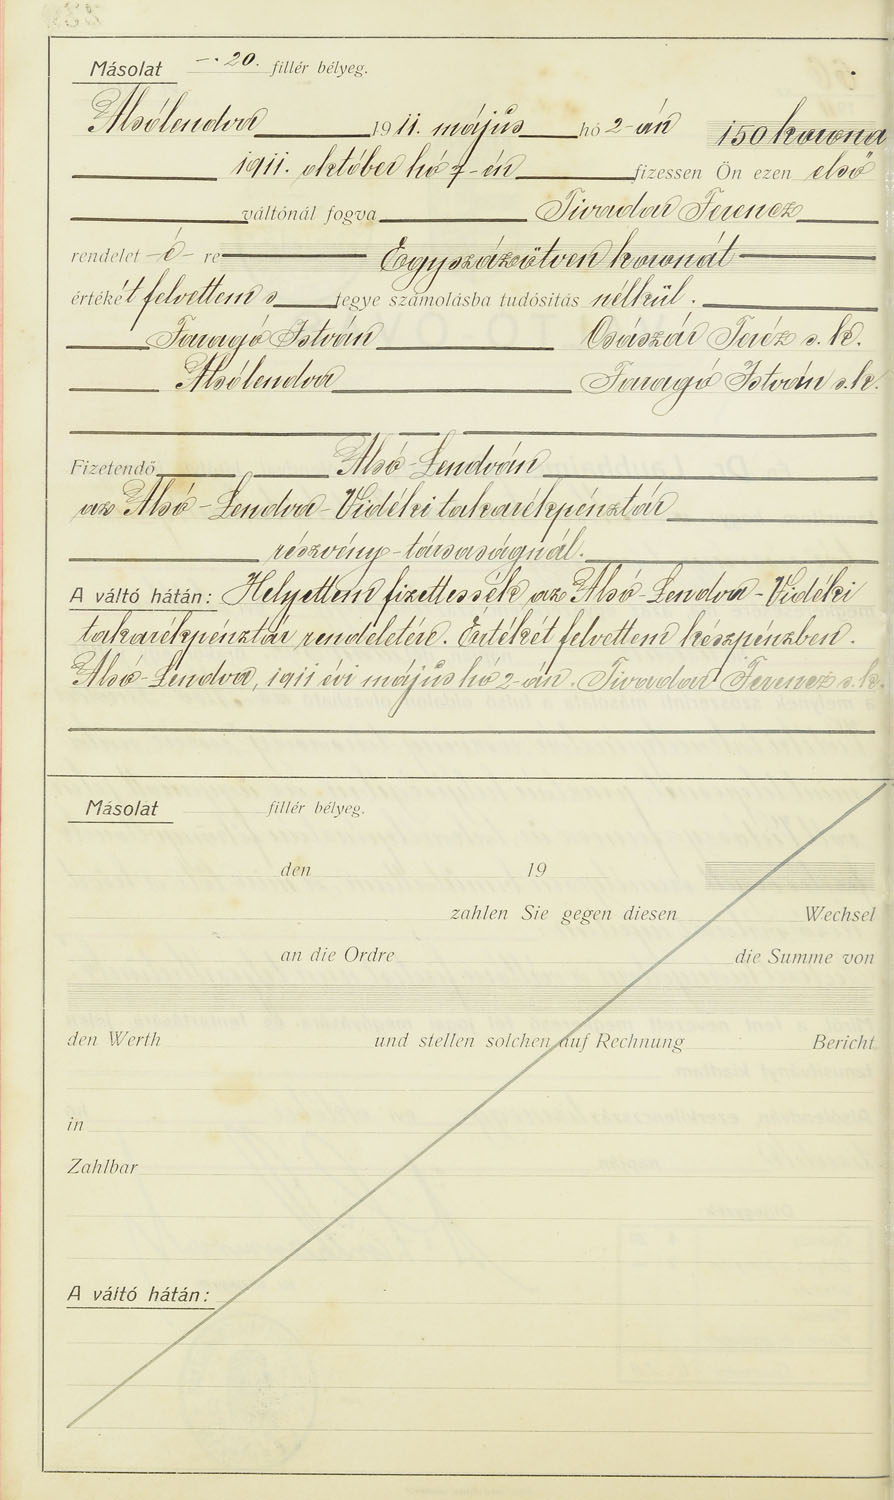 Másolat —·20. fillér bélyeg.
Alsólendva 1911. május hó 2-án 150 korona
1911. október hó 7-én fizessen Ön ezen első
váltónál fogva Tivadar Ferencz
rendelet -é- re Egyszázötven koronát
értékét felvettem s tegye számolásba tudósitás nélkül.
Faragó István Császár Teréz s.k.
Alsólendva Faragó István s.k.
Fizetendő Alsó-Lendván
az Alsó-Lendva-Vidéki takarékpénztár
részvény-társaságnál.
A váltó hátán: Helyettem fizettessék az Alsó-Lendva-Vidéki
takarékpénztár rendeletére. Értékét felvettem készpénzben.
Alsó-Lendva, 1911 évi május hó 2-án. Tivadar Ferencz s.k.
Másolat fillér bélyeg.
den 19
zahlen Sie gegen diesen Wechsel
an die Ordre die Summe von
den Werth und stellen solchen auf Rechnung Bericht
in
Zahlbar
A váltó hátán: